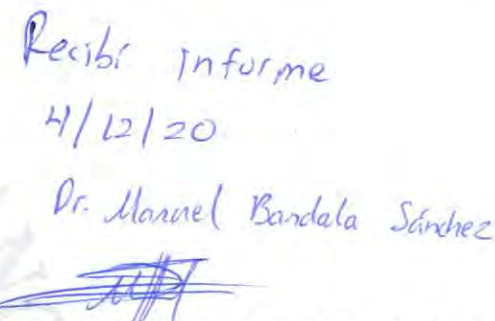 Recibí informe
4/12/20
Dr. Manuel Bandala Sánchez